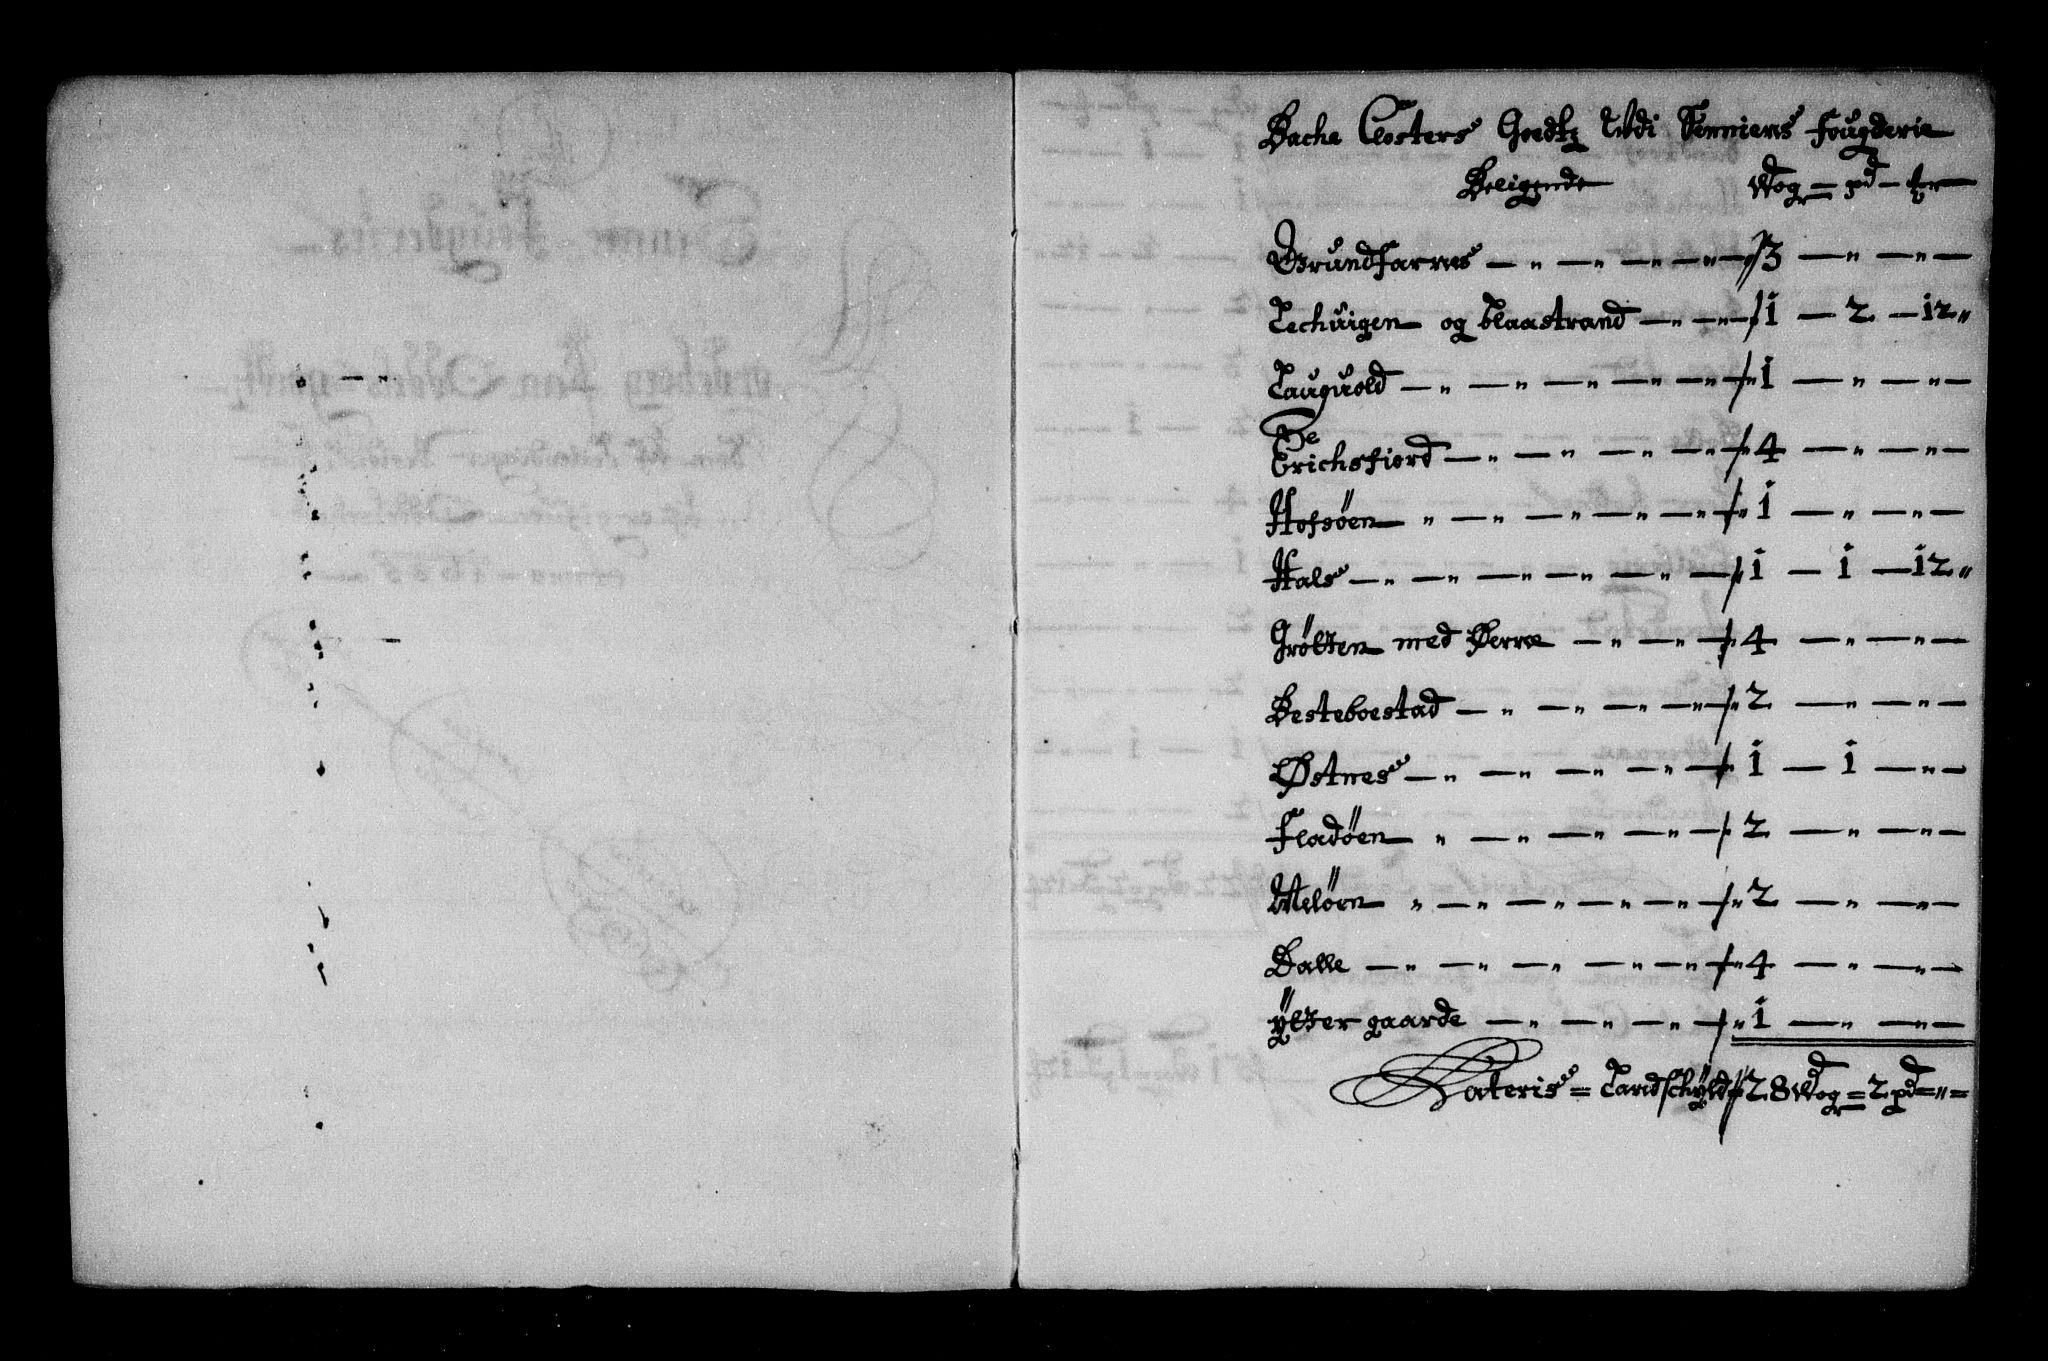 Bache Closters Goedtz Udi Senniens fougderie
Beligende Wog = pd - ℔r
Grundfarnes — „ — „ — „ — „ — 3 — „ — „ —
Lechuigen og blaastrand — „ — „ — 1 — 2 — 12 „
Lauguold — „ — „ — „ — „ — „ — 1 — „ — „ —
De
Erichsfiord — „ — „ — „ — „ — 4 — „ — „ —
Hofsöen „ — „ — „ — „ — „ — 1 — „ — „ —
Hals — „ — „ — „ — „ — „ — 1 — 1 — 12 „
Grölten med Øerne — „ — „ — 4 — „ — „ —
Besteboestad — „ — „ — „ — „ — 2 — „ — „ —
Østnes — „ — „ — „ — „ — 1 — 1 — „ —
Fladöen „ — „ — „ — „ — 2 — „ — „ —
Melöen „ — „ — „ — „ — „ — 2 — „ — „ —
Balle — „ — „ — „ — „ — „ — 4 — „ — „ —
ÿtter gaarde — „ — „ — „ — „ 1 — „ — „ —
Lateris = Landschÿld 28 Wog = 2 pd = „ =